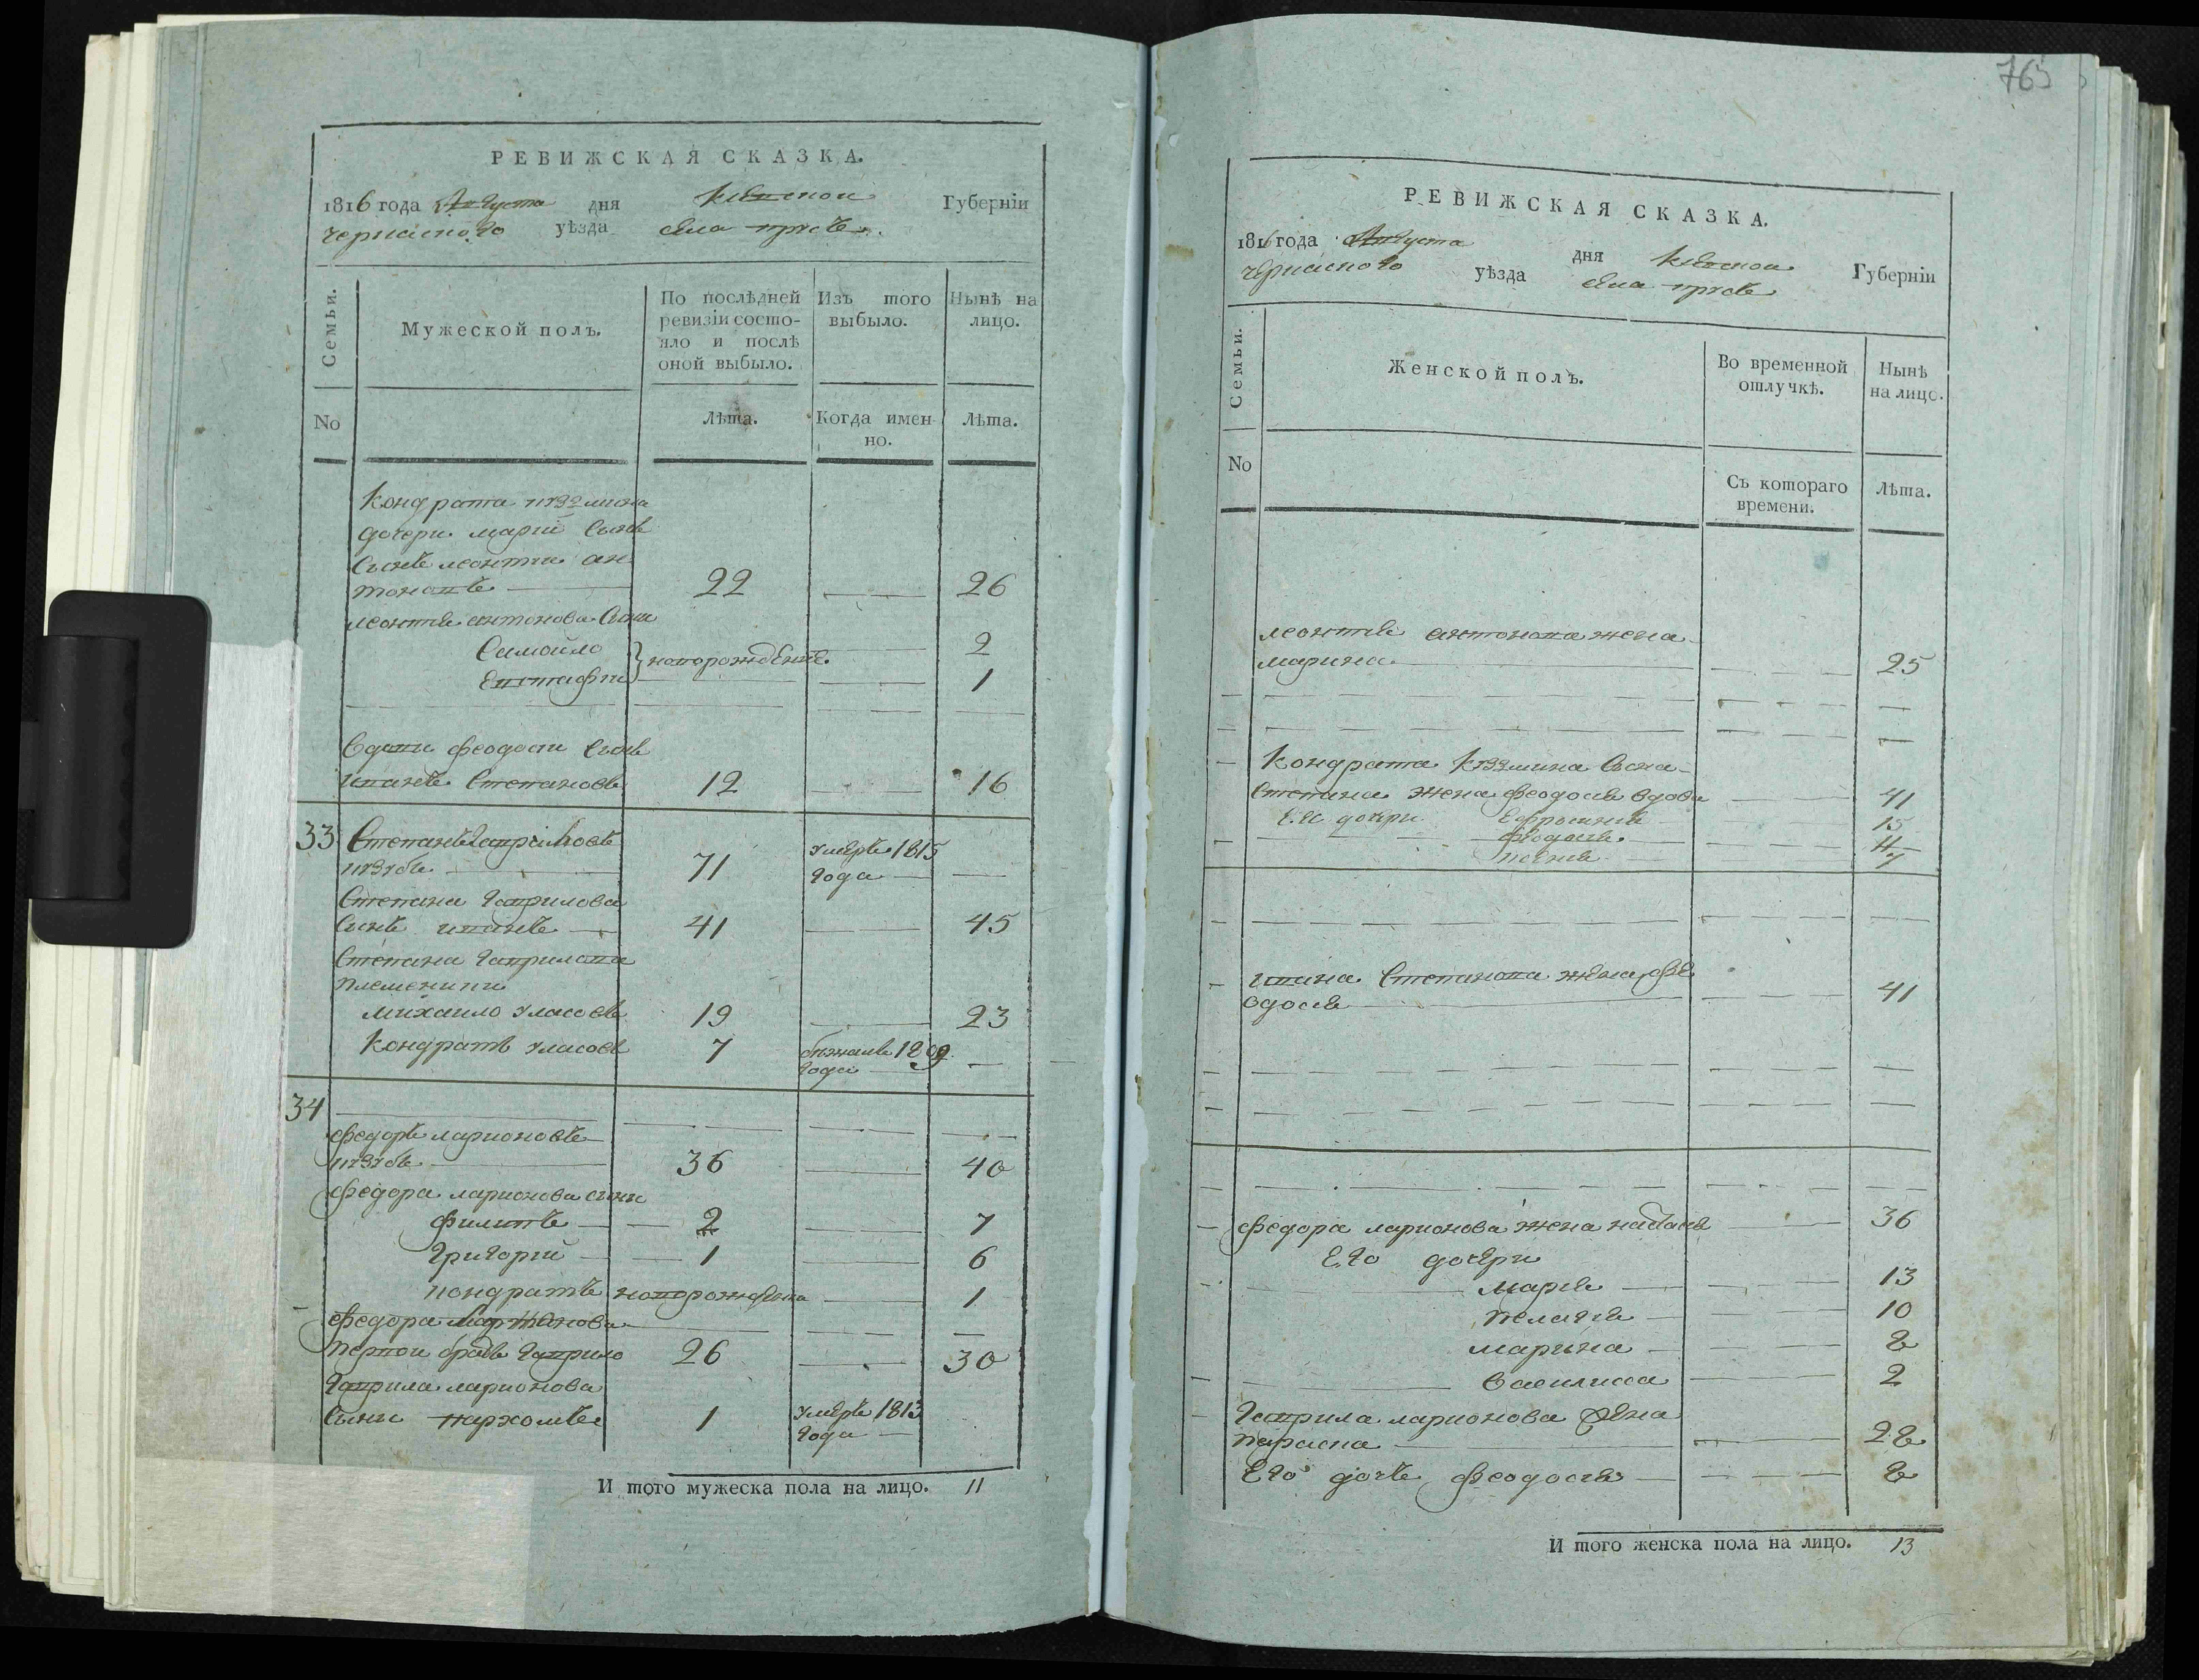 РЕВИЖСКАЯ СКАЗКА.
1816 года Августа дня Киевской Губерніи
черкаского уѣзда села
Семьи.
Мужеской полъ.
По послѣдней ревизіи состо-
яло и послѣ оной выбыло.
Изъ того выбыло.
Нынѣ на лицо.
No
Лѣта.
Когда имен-
но.
Лѣта.
Кондрата кузмина
дочери марии сынъ
сынъ леонтий ан
тоновъ 22 26
леонтия антонова сыны
Самойло 2
Евстафий новорожденые 1
вдовы феодосии сынъ
иванъ Степановъ 12 16
33 Степанъ гавриловъ
71 умеръ 1815 года
Степана гаврилова
сынъ иванъ 41 45
Степана гаврилова
племенники
михаило уласовъ 19 23
Кондратъ уласовъ 7 бежалъ 1809 года
34
федоръ ларионовъ
36 40
федора ларионова сыны
филипъ 2 7
григорий 1 6
кондратъ новорожденъ 1
федора ларионова
первой братъ гаврило 26 30
гаврила ларионова
сынъ пархомъ 1 умеръ 1813 года
И того мужеска пола на лицо. 11
763
РЕВИЖСКАЯ СКАЗКА.
1816 года Августа дня Киевской Губерніи
черкаского уѣзда села
Семьи.
Женской полъ.
Во временной отлучкѣ.
Нынѣ на лицо.
No
Съ котораго времени.
Лѣта.
леонтия антонова жена
марина 25
Кондрата кузмина сына
Степана жена феодосия вдова 41
Ея дочери Ефросиния 15
феодосия 11
7
ивана Степанова жена фе
одосия 41
федора ларионова жена 36
Его дочери
мария 13
пелагия 10
марина 8
василиса 2
гаврила ларионова жена
параска 28
Его дочь феодосия 8
И того женска пола на лицо. 13